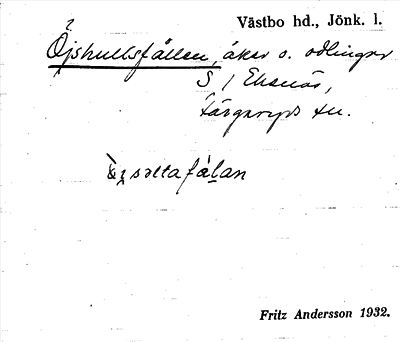 ?
Västbo hd., Jönk. l.
Öjshullsfållan, åker o. odlingar
S / Ekenäs,
Färgaryds sn.
fålan
Fritz Andersson 1932.